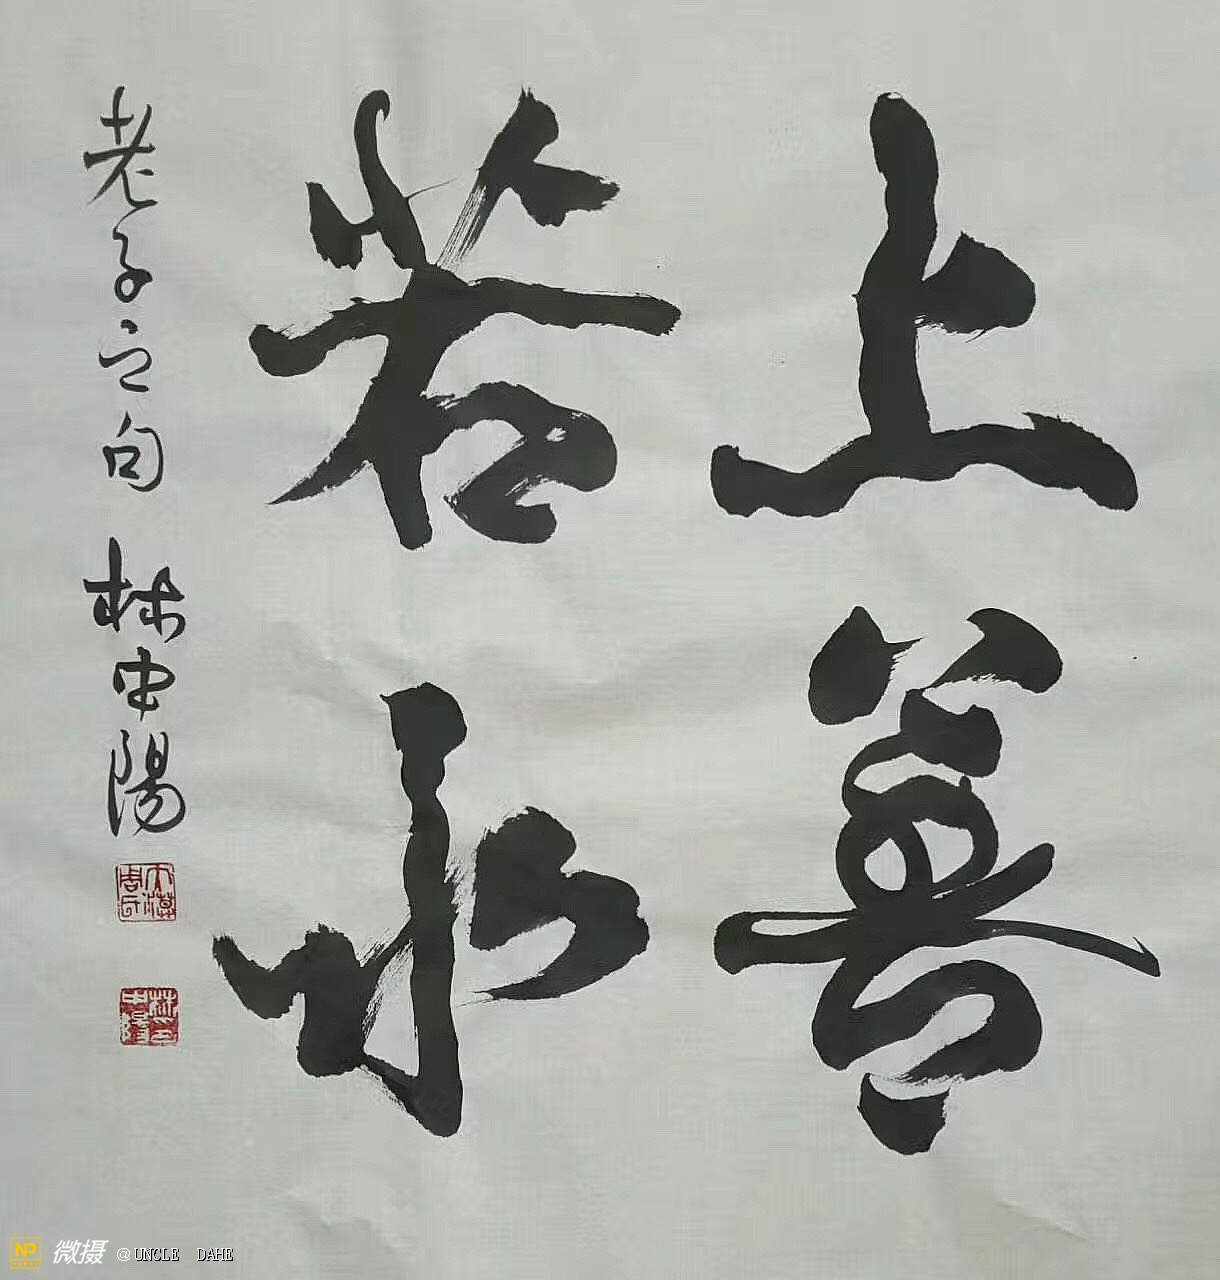 上善
若水
老子之句 林中陽
微摄 @UNCLE DAHE